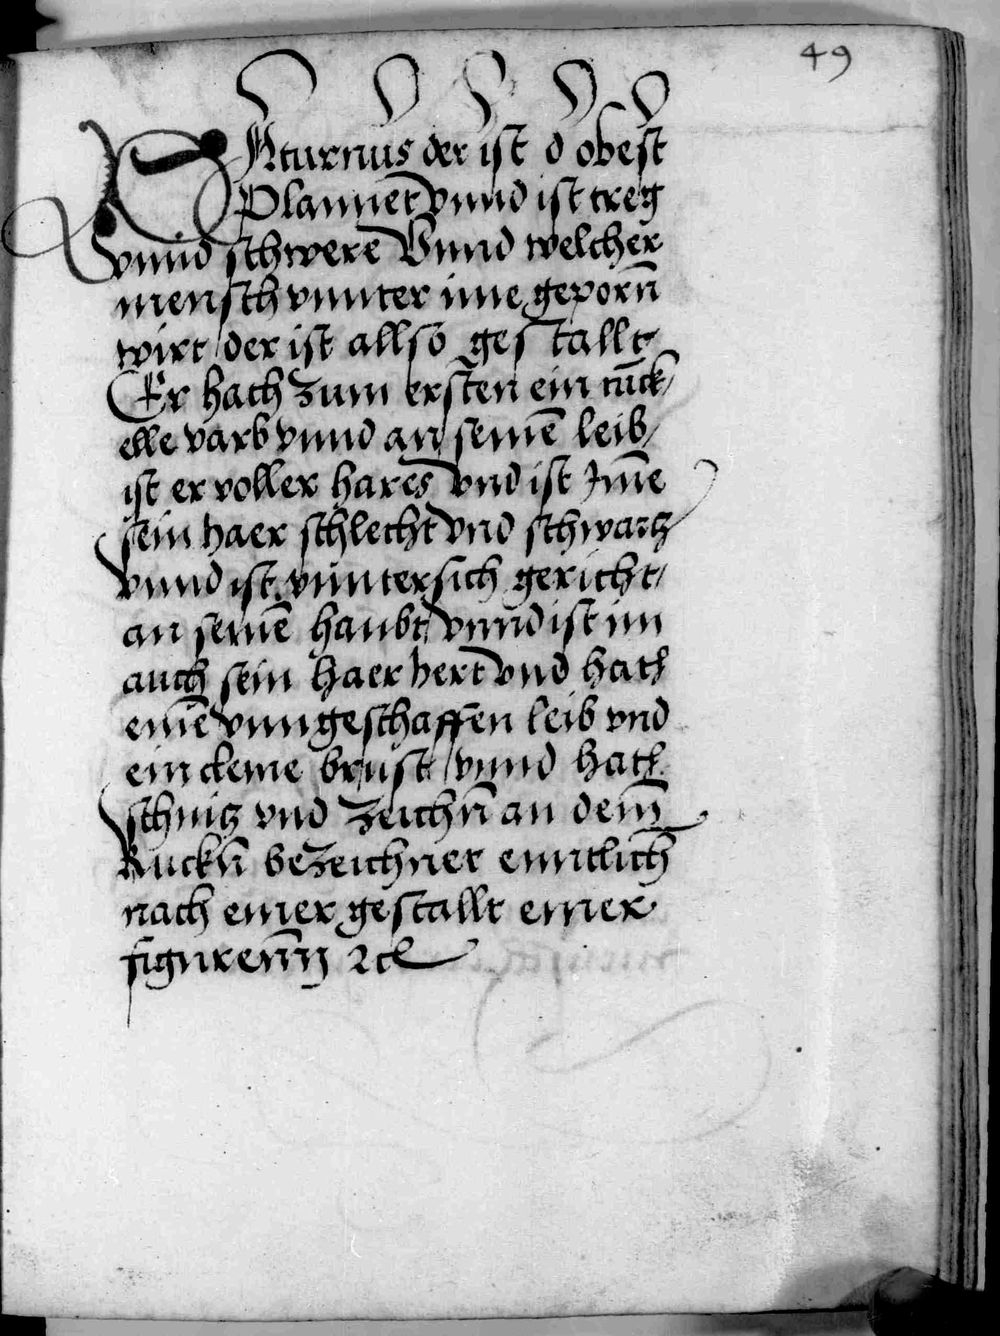 49
SAturnus der ist d obest
Plannet vnnd ist treg
vnnd schwere Vnnd welcher
mensch vnnter ime geporn̄
wirt der ist allso gestallt
Er hath zum ersten ein tuck/
elle varb vnnd an seinē leib/
ist er voller hares vnd ist Im̄e
sein haer schlecht vnd schwartz
vnnd ist vnntersich gericht/
an seinē haubt vnnd ist im
auch sein haer hert vnd hath
einē vnngeschaffen leib vnd
ein cleine brust vnnd hath
schnitz vnd zeichn̄ an dem̄
Ruckn̄ bezeichnet enntlich
nach einer gestallt einer
figurenn̄ ꝛc